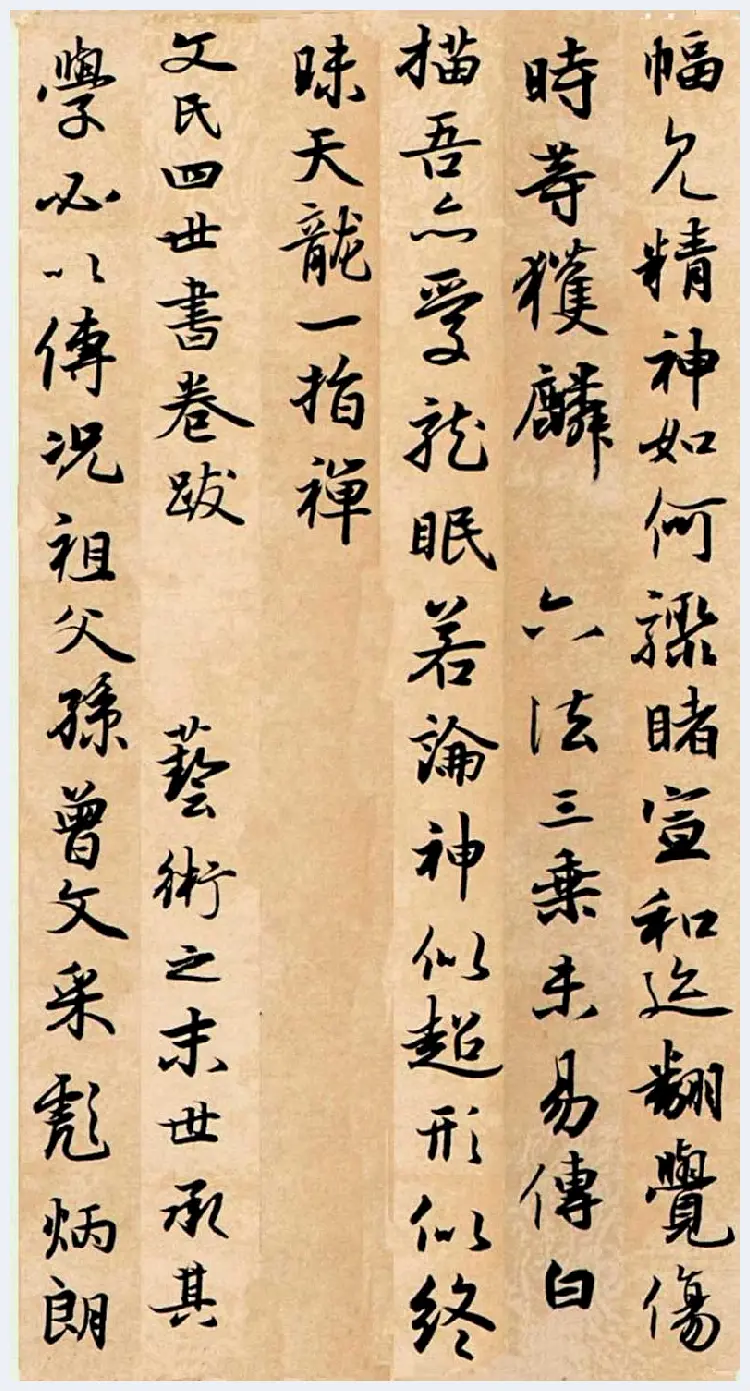 幅允精神如何驟睹宣和迹翻覺傷
時等獲麟 六法三乗未易傳白
描吾亦愛龍眠若論神似超形似終
昧天龍一指禪
文氏四世書卷跋 藝術之末世承其
學必以傳況祖父孫曾文采彪炳朗